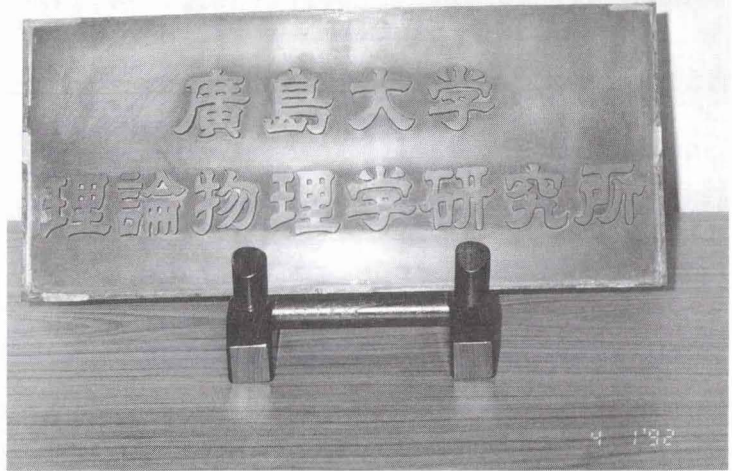 廣島大学
理論物理学研究所
4 1'92